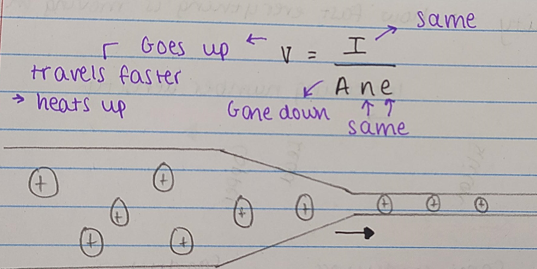 same
Goes up ← V = I / A n e
travels faster
→ heats up
Gone down
same
+ + + + + + + + + +